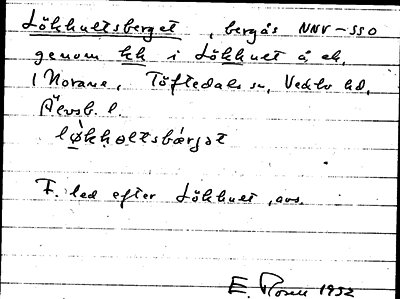 Lökhultsberget, bergås NNV-SSO
genom kk i Lökhult å ek.
1 Norane, Töftedals sn, Vedbo hd,
Älvsb. l.
F. led efter Lökhult, avs.
E. Rosell 1932